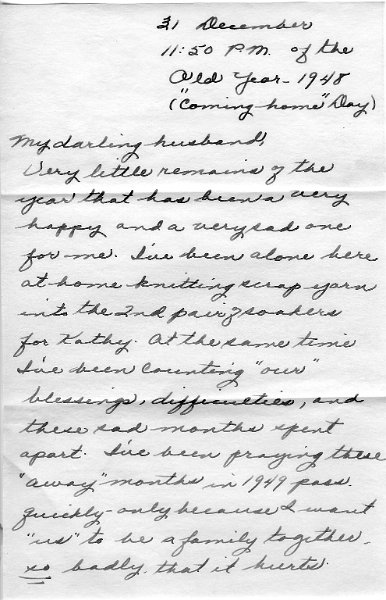 31 December
11:50 P.M. of the
Old Year - 1948
("Coming-home" Day)
My darling husband,
Very little remains of the
year that has been a very
happy and a very sad one
for me. I've been alone here
at home knitting scrap yarn
into the 2nd pair of soakers
for Kathy. At the same time
I've been counting "our"
blessings, difficulties, and
these sad months spent
apart. I've been praying these
"away" months in 1949 pass
quickly - only because I want
"us" to be a family together
so badly that it hurts.